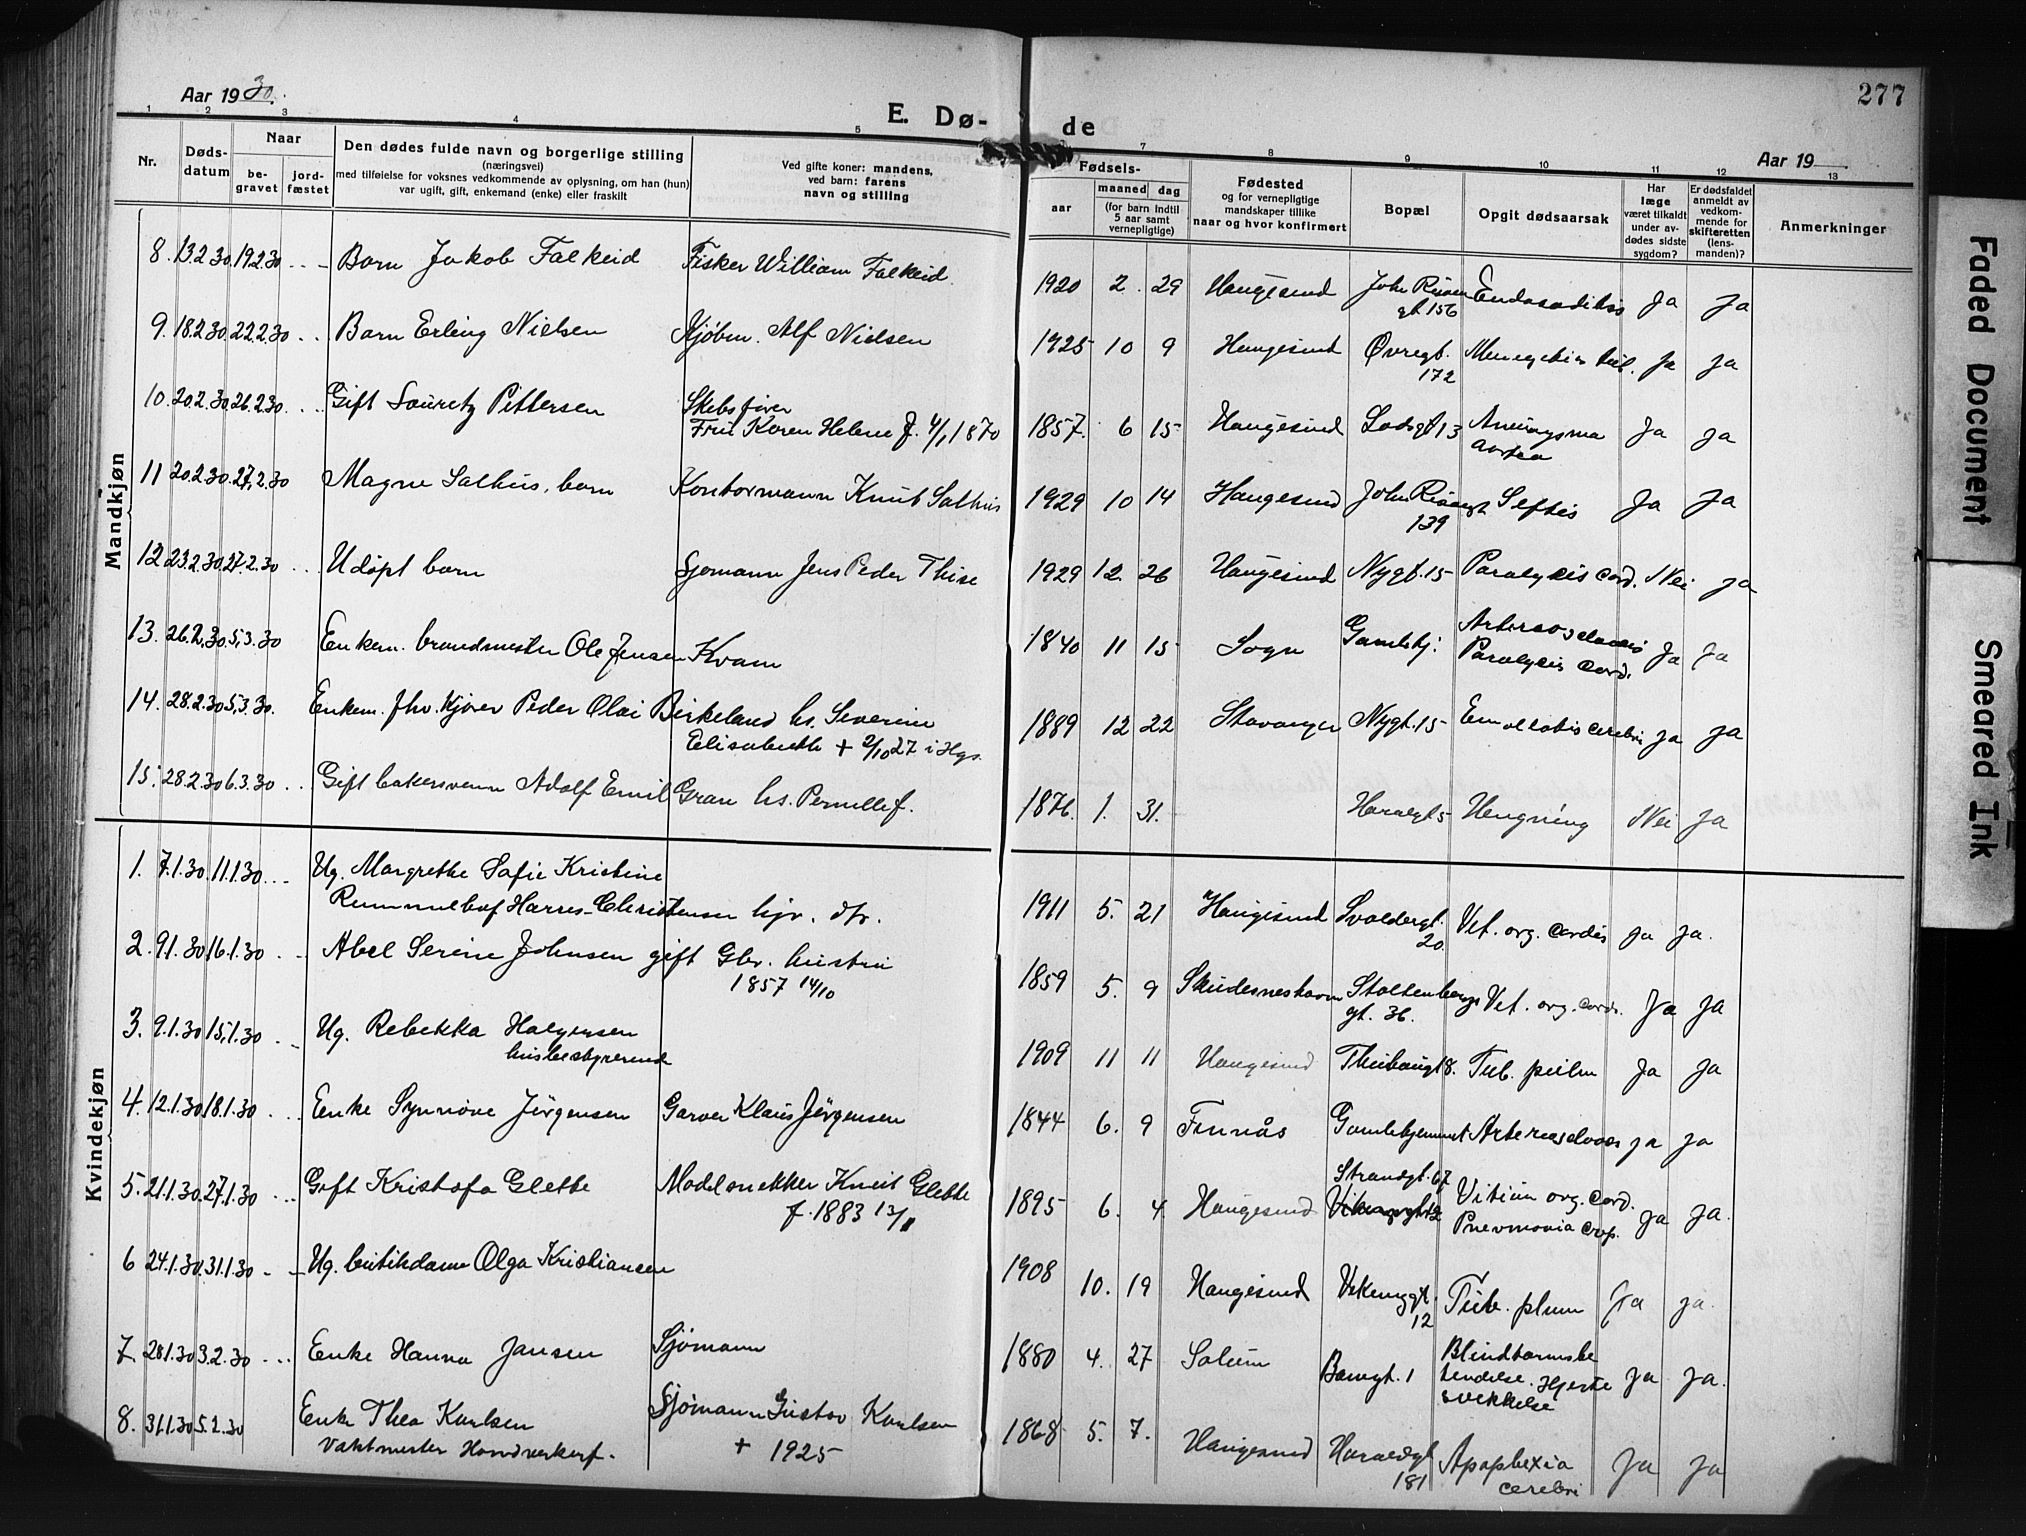 277
Aar 1930.
E. Dø-
de
Aar 19
1 2 3 4 5 7 8 9 10 11 12 13
Nr.
Døds-
datum
Naar
be-
gravet
jord-
fæstet
Den dødes fulde navn og borgerlige stilling
(næringsvei)
med tilføielse for voksnes vedkommende av oplysning, om han (hun)
var ugift, gift, enkemand (enke) eller fraskilt
Ved gifte koner: mandens,
ved barn: farens
navn og stilling
Fødsels-
aar
maaned dag
(for barn indtil
5 aar samt
vernepligtige)
Fødested
og for vernepligtige
mandskaper tillike
naar og hvor konfirmert
Bopæl
Opgit dødsaarsak
Har
læge
været tilkaldt
under av-
dødes sidste
sygdom?
Er dødsfaldet
anmeldt av
vedkom-
mende for
skifteretten
(lens-
manden)?
Anmerkninger
Mandkjøn
8. 13.2.30. 19.2.30 Barn Jakob Falkeid Fisker William Falkeid. 1920 2. 29 Haugesund Ja Ja
gt 156
9. 18.2.30. 22.2.30 Barn Erling Nielsen Kjøbm. Alf Nielsen 1925 10 9 Haugesund Øvregt. Ja Ja
172
10. 20.2.30. 26.2.30. Gift Lauretz Pettersen 1857. 6 15 Haugesund 13 Aneurysma Ja Ja
Fru Karen Helene f. 4/1 1870 aorta
11 20.2.30. 27.2.30 Magne Salhus, barn Kontormann Knut Salhus 1929 10 14 Haugesund John Ja Ja
139
12 23.2.30. 27.2.30 Udøpt barn Sjømann Jens Peder Thise 1929 12. 26 Haugesund Nygt. 15 Paralysis cord. Nei Ja
13. 26.2.30. 5.3.30 Enkem. brandmester Ole Jensen Kvam 1840 11 15 Sogn Gamlehj. Ja Ja
Paralysis cord.
14. 28.2.30 5.3.30. Enkem. fhv. Peder Olai Birkeland hs. Severine 1889 12 22 Stavanger Nygt. 15 cerebri Ja Ja
Elisabeth + 2/10 27 i Hgs.
15. 28.2.30 6.3.30 Gift bakersvenn Adolf Emil Gran hs. Pernille f. 1876. 1. 31. Haralgt 5 Hengning Nei Ja
Kvindekjøn
1. 7.1.30. 11.1.30 Ug. Margrethe Sofie Kristine
Rummelhof Harres-Christensen hjv. dtr. 1911 5. 21 Haugesund Svoldergt. Vit. org. cordis Ja Ja.
20.
2. 9.1.30 16.1.30 Abel Serine Johnsen gift Gbr. hustru 1859 5. 9 Skudesneshavn Stoltenbergs Vit. org. cord. Ja Ja
1857 14/10 gt. 36.
3. 9.1.30 15.1.30 Ug. Rebekka 1909 11 11 Haugesund Tub. pulm Ja Ja
husbestyrerinde
4. 12.1.30 18.1.30 Enke Synnøve Jørgensen Garver Klaus Jørgensen 1844 6. 9 Finnås Gamlehjemmet Ja Ja
5. 21.1.30. 27.1.30 Gift Kristofa Glette Modelsnekker Knut Glette 1895 6. 4 Haugesund Strandgt. 67 Vitium org. cord. Ja Ja.
f. 1883 13/11 Pnevmonia crop.
6 24.1.30. 31.1.30 Ug. butikdame Olga Kristiansen 1908 10. 19 Haugesund Vikinggt. Tub. plum Ja Ja.
12
7. 28.1.30 3.2.30 Enke Hanna Jansen Sjømann 1880 4. 27 Solum 1 Blindtarmsbe Ja Ja.
tendelse. Hjerte
svekkelse
8. 31.1.30 5.2.30 Enke Thea Karlsen Sjømann Gustav Karlsen 1868 5. 7. Haugesund Haraldsgt Apoplexia Ja Ja
Vaktmester Handverkerf. + 1925 181 cerebri
Faded Document
Smeared Ink